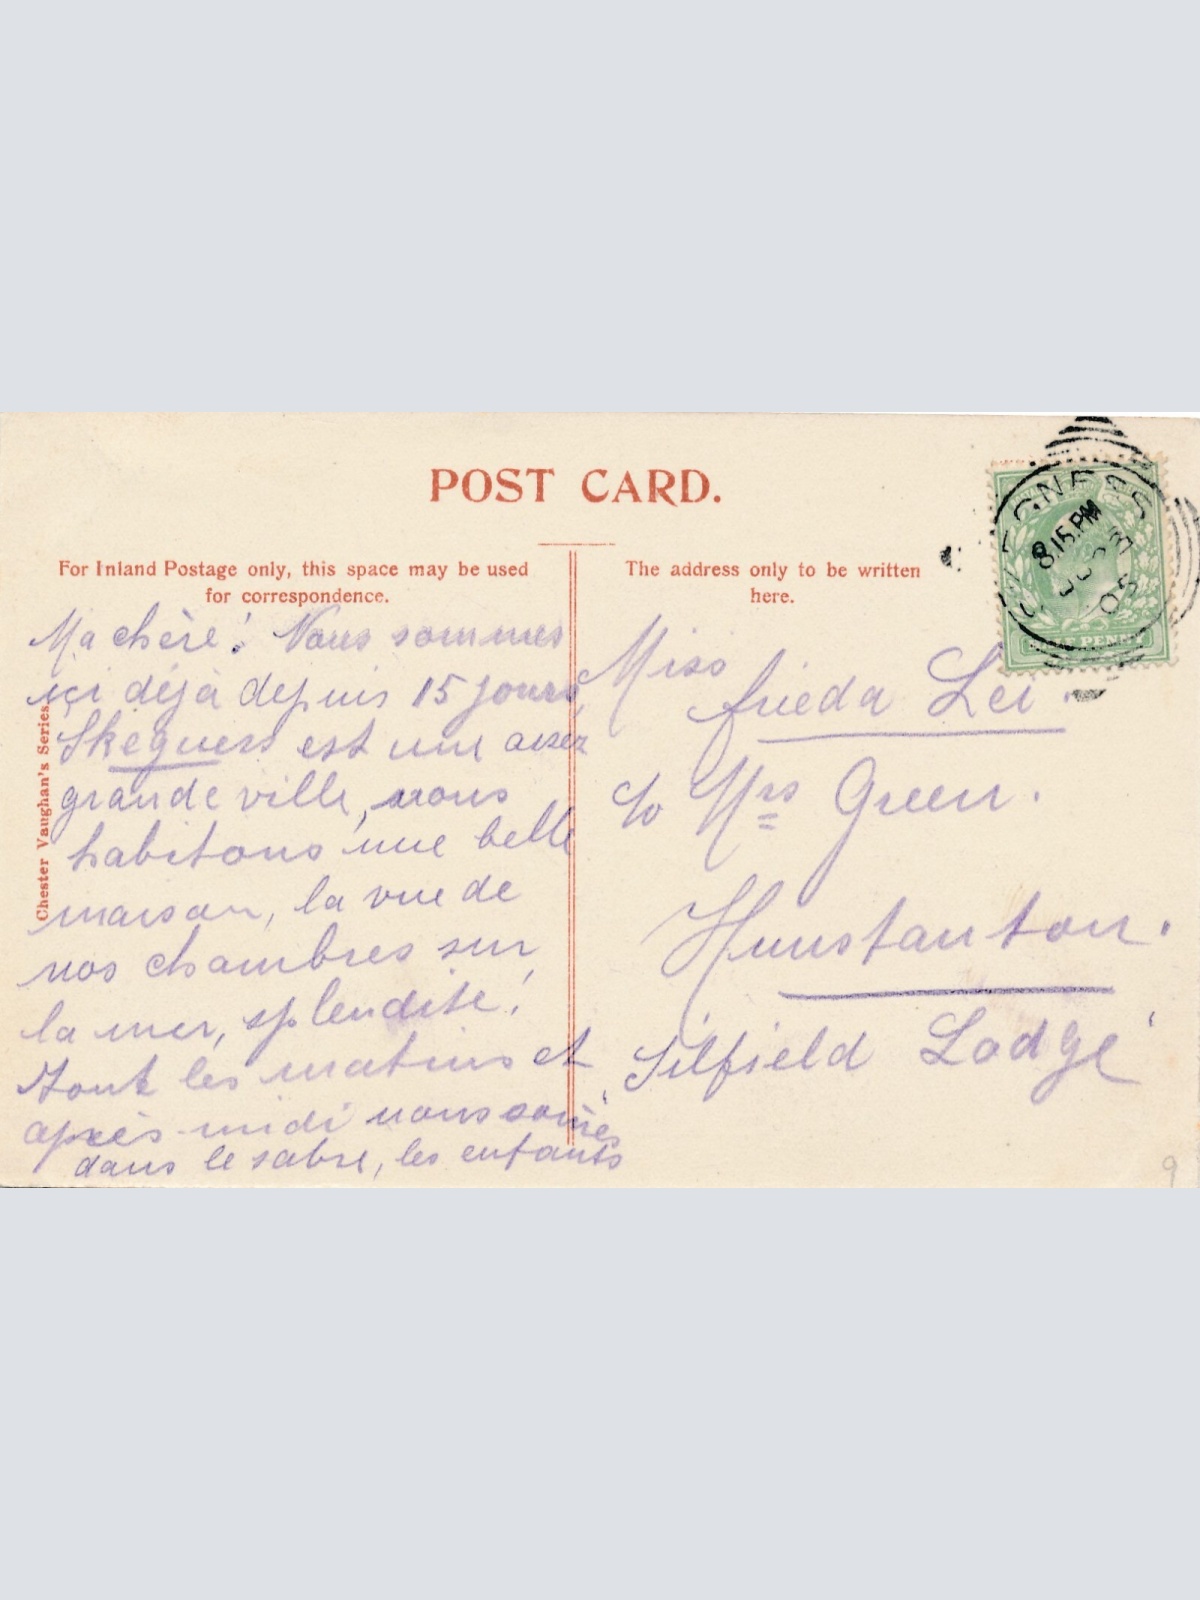 POST CARD.
For Inland Postage only, this space may be used
for correspondence.
The address only to be written
here.
Ma chère! Nous sommes
içi déjà depuis 15 jours,
Skegness est une assez
grande ville, nous
habitons une belle
maison, la vue de
nos chambres sur
la mer, splendite!
Tout les matins et
après-midi nous somes
dans le sabre, les enfants
Miss
frieda Lei
c/o Mrs Green.
Hunstanton.
Silfield Lodge
Chester Vaughan's Series.
SKEGNESS
8.15 PM
05
PENNY
9